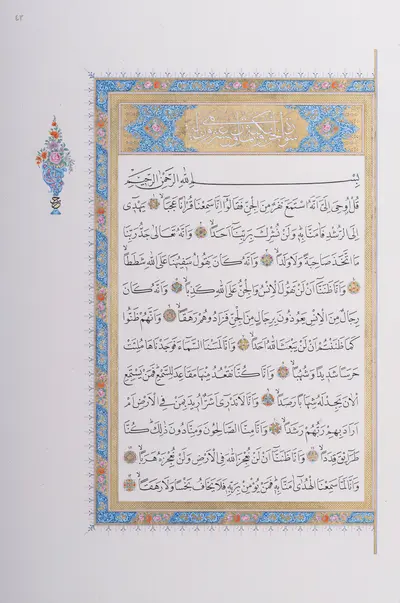 بِسْمِ اللهِ الرَّحْمٰنِ الرَّحِيمِ
قُلْ أُوحِيَ إِلَيَّ أَنَّهُ اسْتَمَعَ نَفَرٌ مِنَ الْجِنِّ فَقَالُوا إِنَّا سَمِعْنَا قُرْآنًا عَجَبًا يَهْدِي
إِلَى الرُّشْدِ فَآمَنَّا بِهِ وَلَنْ نُشْرِكَ بِرَبِّنَا أَحَدًا وَأَنَّهُ تَعَالَى جَدُّ رَبِّنَا
مَا اتَّخَذَ صَاحِبَةً وَلَا وَلَدًا وَأَنَّهُ كَانَ يَقُولُ سَفِيهُنَا عَلَى اللهِ شَطَطًا
وَأَنَّا ظَنَنَّا أَنْ لَنْ تَقُولَ الْإِنْسُ وَالْجِنُّ عَلَى اللهِ كَذِبًا وَأَنَّهُ كَانَ
رِجَالٌ مِنَ الْإِنْسِ يَعُوذُونَ بِرِجَالٍ مِنَ الْجِنِّ فَزَادُوهُمْ رَهَقًا وَأَنَّهُمْ ظَنُّوا
كَمَا ظَنَنْتُمْ أَنْ لَنْ يَبْعَثَ اللهُ أَحَدًا وَأَنَّا لَمَسْنَا السَّمَاءَ فَوَجَدْنَاهَا مُلِئَتْ
حَرَسًا شَدِيدًا وَشُهُبًا وَأَنَّا كُنَّا نَقْعُدُ مِنْهَا مَقَاعِدَ لِلسَّمْعِ فَمَنْ يَسْتَمِعِ
الْآنَ يَجِدْ لَهُ شِهَابًا رَصَدًا وَأَنَّا لَا نَدْرِي أَشَرٌّ أُرِيدَ بِمَنْ فِي الْأَرْضِ أَمْ
أَرَادَ بِهِمْ رَبُّهُمْ رَشَدًا وَأَنَّا مِنَّا الصَّالِحُونَ وَمِنَّا دُونَ ذَلِكَ كُنَّا
طَرَائِقَ قِدَدًا وَأَنَّا ظَنَنَّا أَنْ لَنْ نُعْجِزَ اللهَ فِي الْأَرْضِ وَلَنْ نُعْجِزَهُ هَرَبًا
وَأَنَّا لَمَّا سَمِعْنَا الْهُدَى آمَنَّا بِهِ فَمَنْ يُؤْمِنْ بِرَبِّهِ فَلَا يَخَافُ بَخْسًا وَلَا رَهَقًا